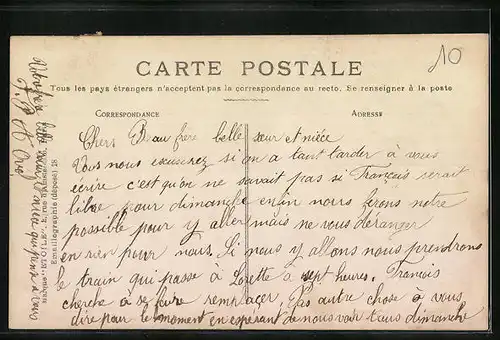 10
CARTE POSTALE
Tous les pays étrangers n'acceptent pas la correspondance au recto. Se renseigner à la poste
CORRESPONDANCE
ADRESSE
Chers Beau frère belle sœur et nièce
Vous nous excuserez si on a tant tarder à vous
écrire c'est qu'on ne savait pas si Français serait
libre pour dimanche enfin nous ferons notre
possible pour y aller mais ne vous déranger
en rien pour nous. Si nous y allons nous prendrons
le train qui passe à Lorette à sept heures. Français
cherche à se faire remplacer. Pas autre chose à vous
dire pour le moment en espérant de nous voir tous dimanche
qui pense à vous
Emaillographie (déposé) 28